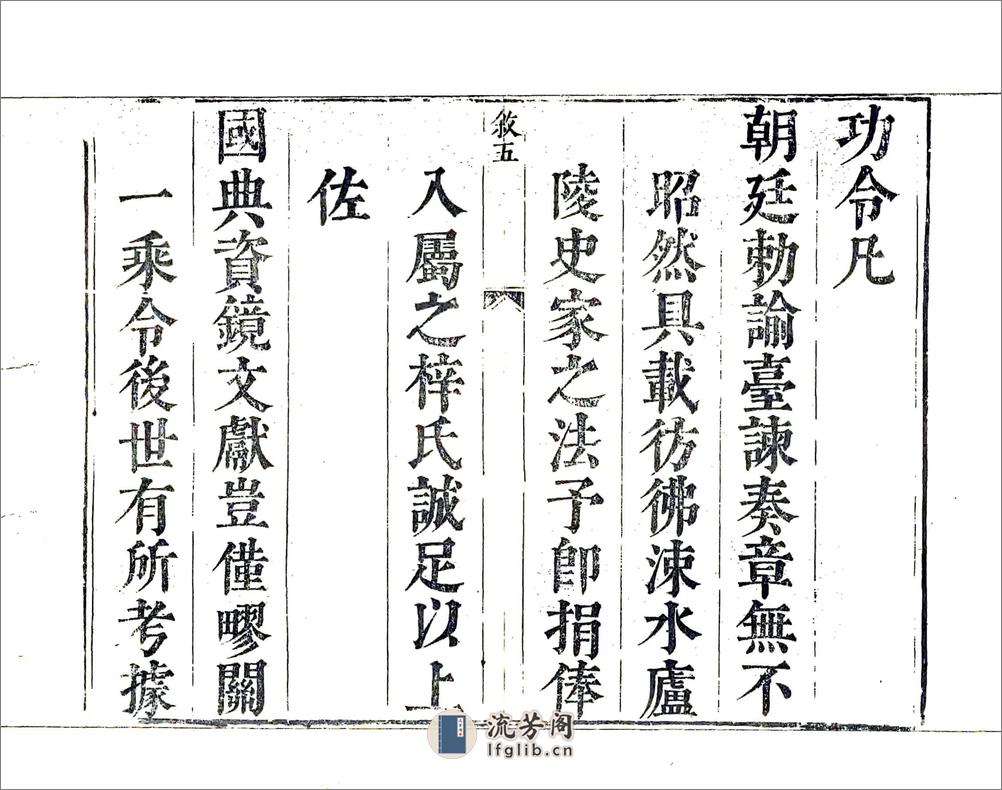 功令凡
朝廷勅諭臺諫奏章無不
昭然具載彷彿涑水廬
陵史家之法予即捐俸
敘五
入屬之梓氏誠足以上
佐
國典資鏡文獻豈僅疁關
一乘令後世有所考據
流芳阁
lfglib.cn